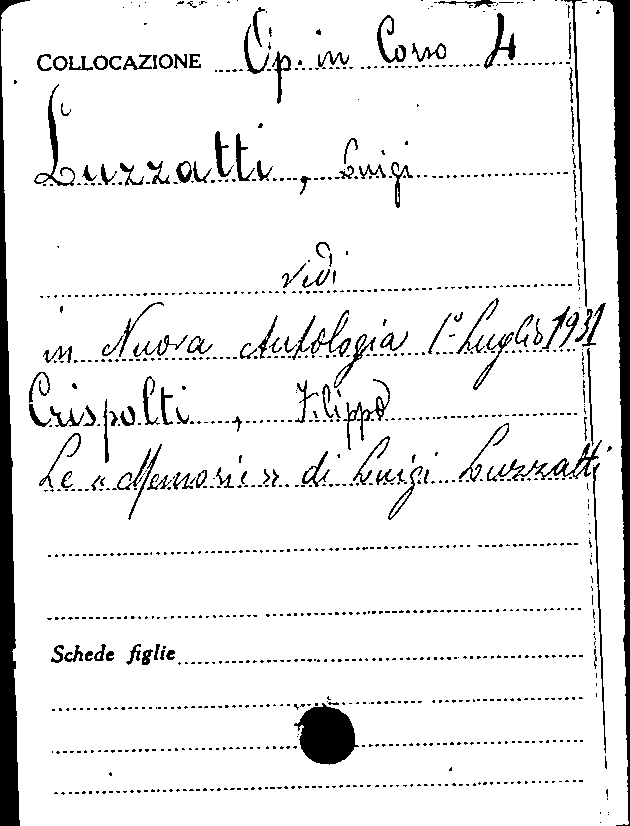 COLLOCAZIONE Op. in Corso 4
Luzzatti, Luigi
vedi
in Nuova Antologia 1º Luglio 1931
Crispolti, Filippo
Le «Memorie» di Luigi Luzzatti
Schede figlie